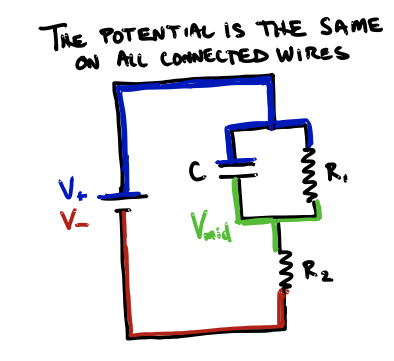 THE POTENTIAL IS THE SAME
ON ALL CONNECTED WIRES
V+
V-
C
R1
Vmid
R2